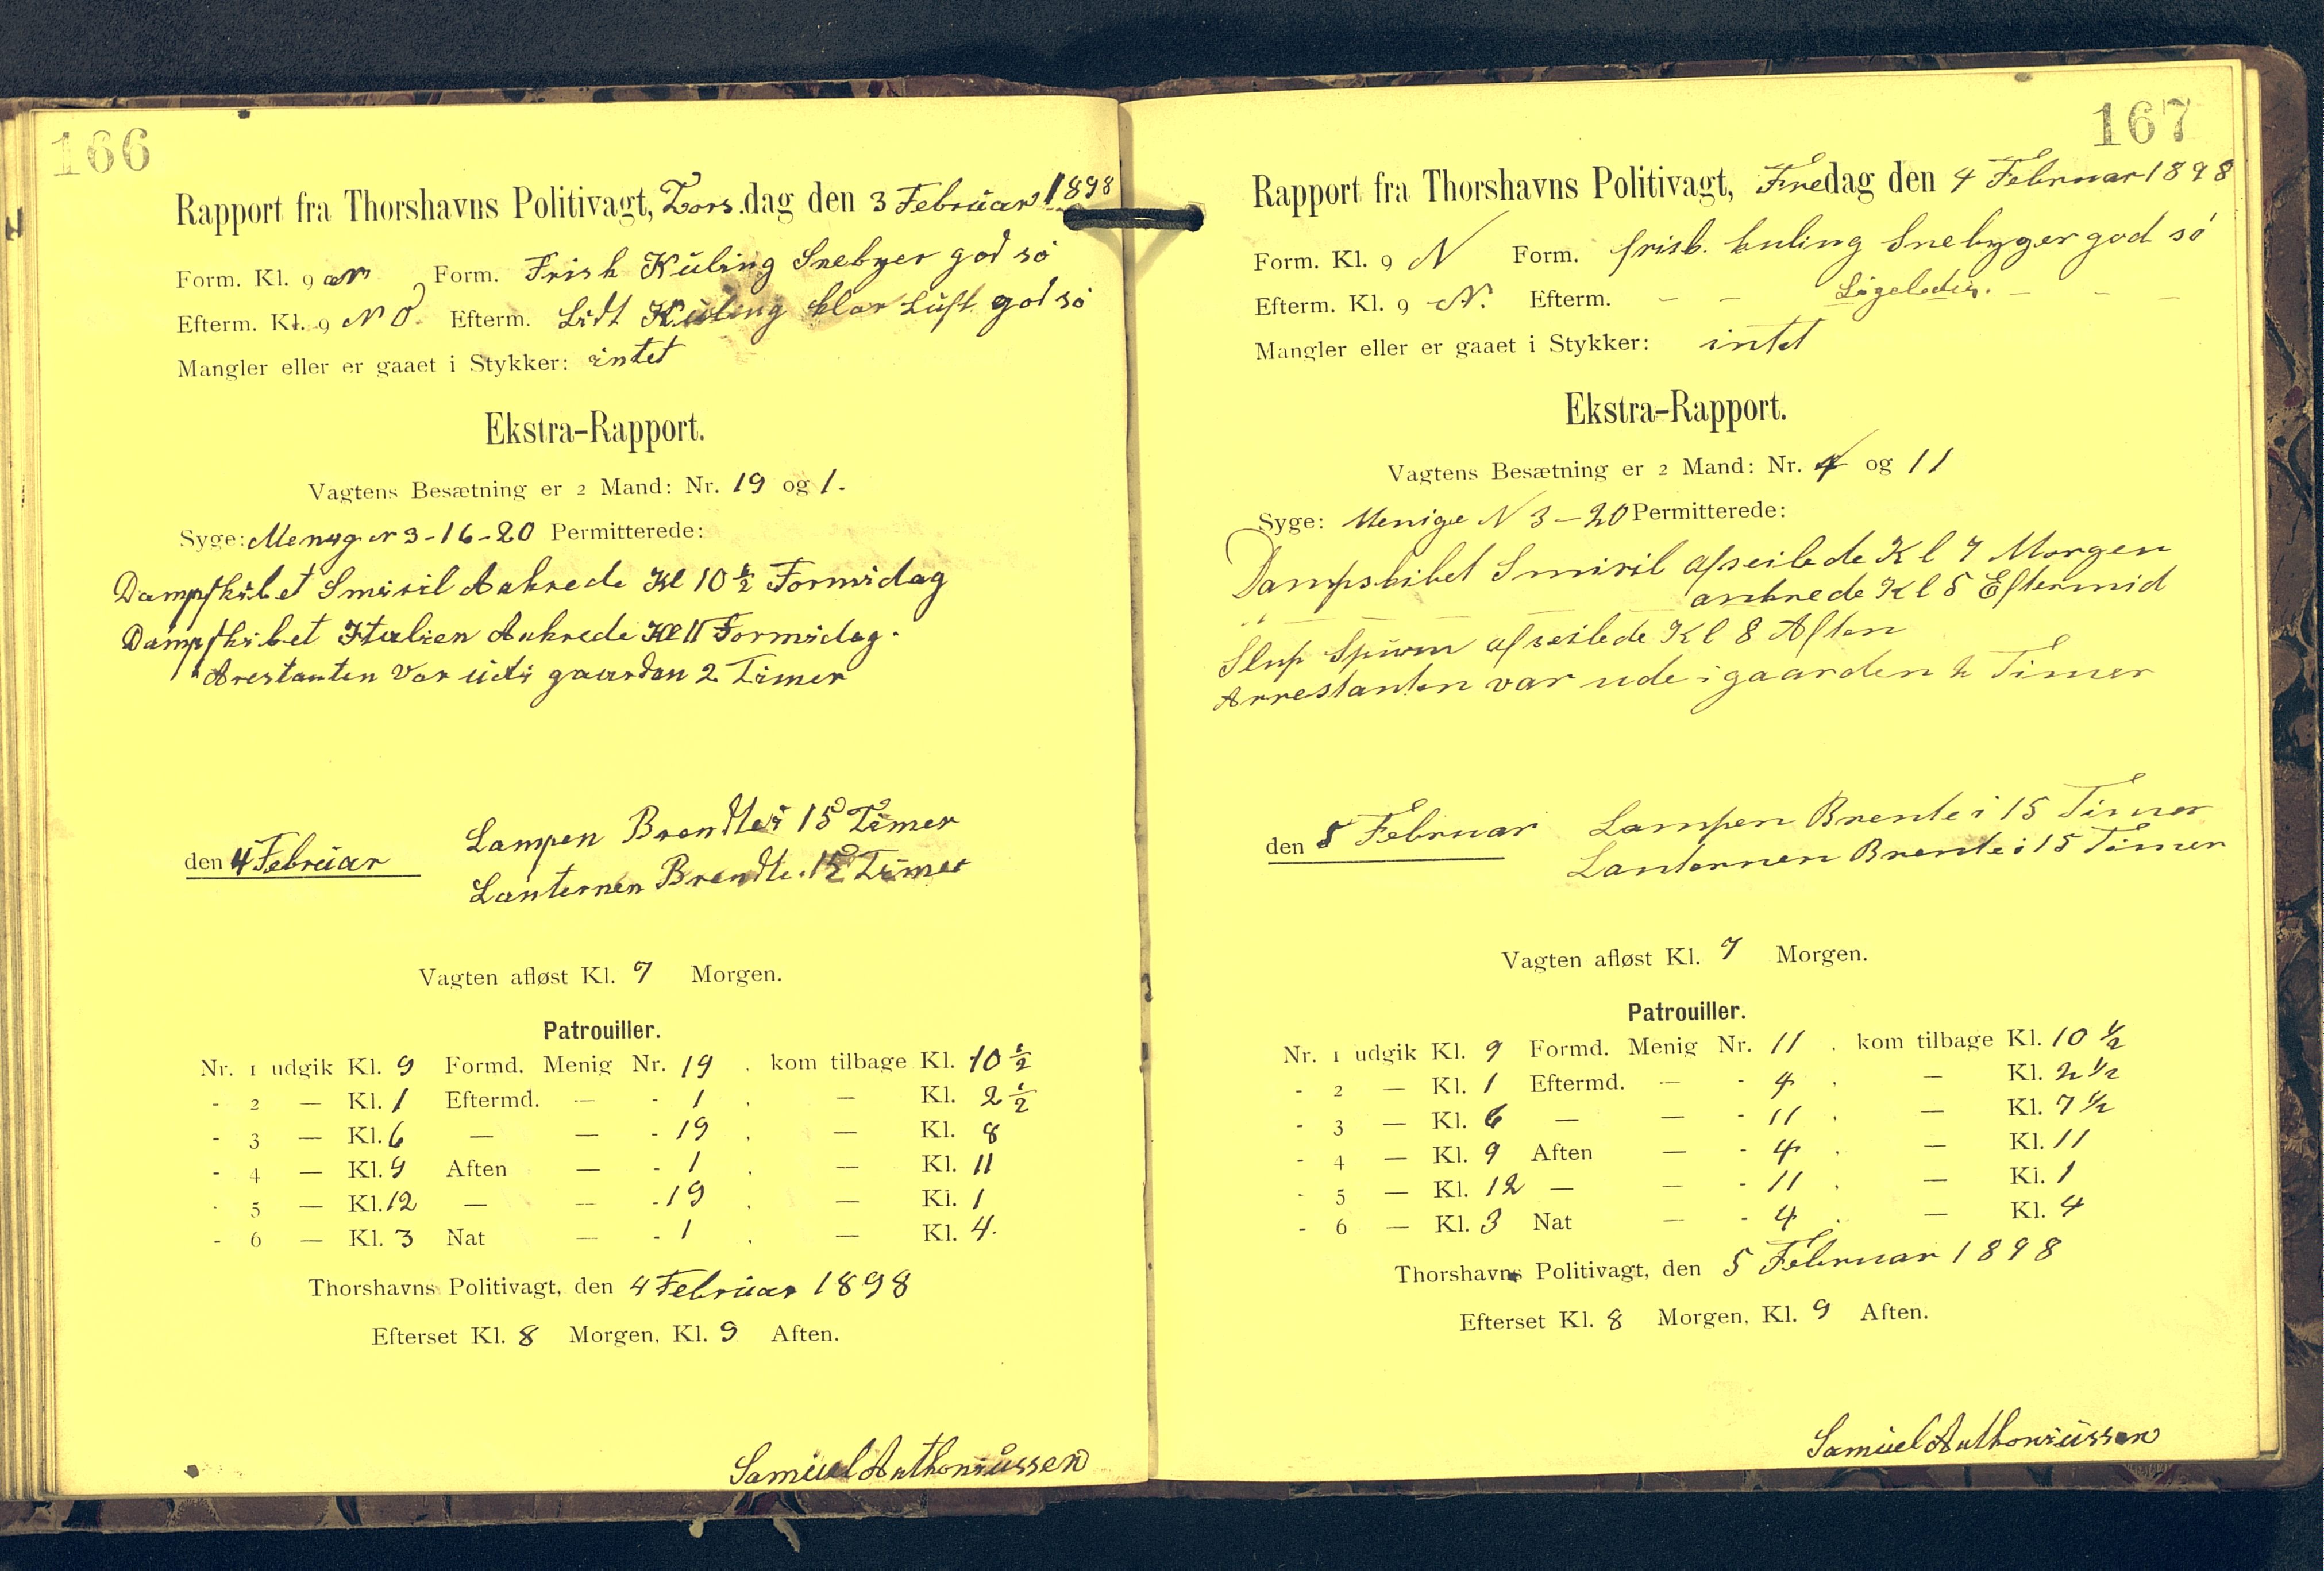 166
Rapport fra Thorshavns Politivagt, Torsdag den 3 Februar 1898
Form. Kl. 9 N Form. Frisk Kuling Snebyer god sø
Efterm. Kl. 9 NO. Efterm. Lidt Kuling klar Luft god sø
Mangler eller er gaaet i Stykker: intet
Ekstra-Rapport.
Vagtens Besætning er 2 Mand: Nr. 19 og 1.
Syge: Menig N 3-16-20 Permitterede:
Dampskibet Smiril Ankrede Kl 10 ½ Formidag
Dampskibet Italien Ankrede Kl 11 Formidag.
Arestanten Var udi gaarden 2 Timer
den 4 Februar
Lampen Brendte i 15 Timer
Lanternen Brendte i 15 Timer
Vagten afløst Kl. 7 Morgen.
Patrouiller.
Nr. 1 udgik Kl. 9 Formd. Menig Nr. 19 . kom tilbage Kl. 10 ½
- 2 — Kl. 1 Eftermd. — - 1 . — Kl. 2 ½
- 3 — Kl. 6 — — - 19 . — Kl. 8
- 4 — Kl. 9 Aften — - 1 . — Kl. 11
- 5 — Kl. 12 — — - 19 . — Kl. 1
- 6 — Kl. 3 Nat — - 1 . — Kl. 4.
Thorshavns Politivagt, den 4 Februar 1898
Efterset Kl. 8 Morgen, Kl. 9 Aften.
Samuel Anthoniussen
167
Rapport fra Thorshavns Politivagt, Fredag den 4 Februar 1898
Form. Kl. 9 N Form. frisk. kuling Snebyger god sø
Efterm. Kl. 9 N. Efterm. — — Ligeledes. — — —
Mangler eller er gaaet i Stykker: intet
Ekstra-Rapport.
Vagtens Besætning er 2 Mand: Nr. 4 og 11
Syge: Menige N 3-20 Permitterede:
Dampskibet Smiril afseilede Kl 7 Morgen
" — — ankrede Kl 5 Eftermid
Slup afseilede Kl 8 Aften
Arrestanten var ude i gaarden 2 Timer
den 5 Februar
Lampen Brente i 15 Timer
Lanternen Brente i 15 Timer
Vagten afløst Kl. 7 Morgen.
Patrouiller.
Nr. 1 udgik Kl. 9 Formd. Menig Nr. 11 . kom tilbage Kl. 10 ½
- 2 — Kl. 1 Eftermd. — - 4 . — Kl. 2 ½
- 3 — Kl. 6 — — - 11 . — Kl. 7 ½
- 4 — Kl. 9 Aften — - 4 . — Kl. 11
- 5 — Kl. 12 — — - 11 . — Kl. 1
- 6 — Kl. 3 Nat — - 4 . — Kl. 4
Thorshavns Politivagt, den 5 Februar 1898
Efterset Kl. 8 Morgen, Kl. 9 Aften.
Samuel Anthoniussen